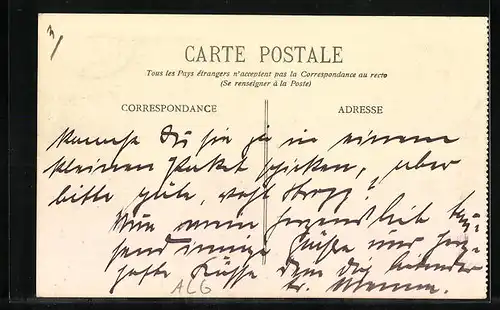 3/
CARTE POSTALE
Tous les Pays étrangers n'acceptent pas la Correspondance au recto
(Se renseigner à la Poste)
CORRESPONDANCE
ADRESSE
kannst Du sie ja in einem
kleinen Paket schicken, aber
bitte gute,
Nun mein herzenslieb tau-
send innige Grüße und herz-
hafte Küsse Dein Dich liebender
tr. Mann.
ALG